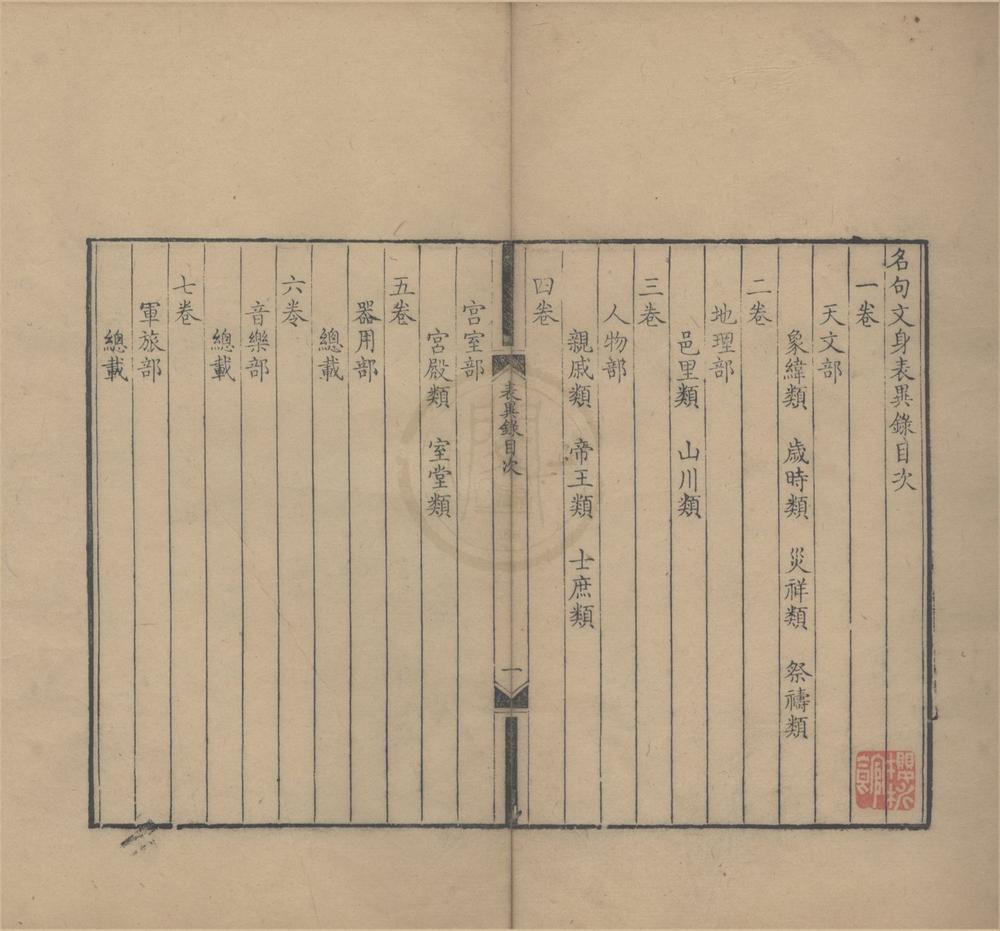 名句文身表異錄目次
一卷
天文部
象緯類　歲時類　災祥類　祭禱類
二卷
地理部
邑里類　山川類
三卷
人物部
親戚類　帝王類　士庶類
四卷
表異錄目次
一
宮室部
宮殿類　室堂類
五卷
器用部
總載
六卷
音樂部
總載
七卷
軍旅部
總載